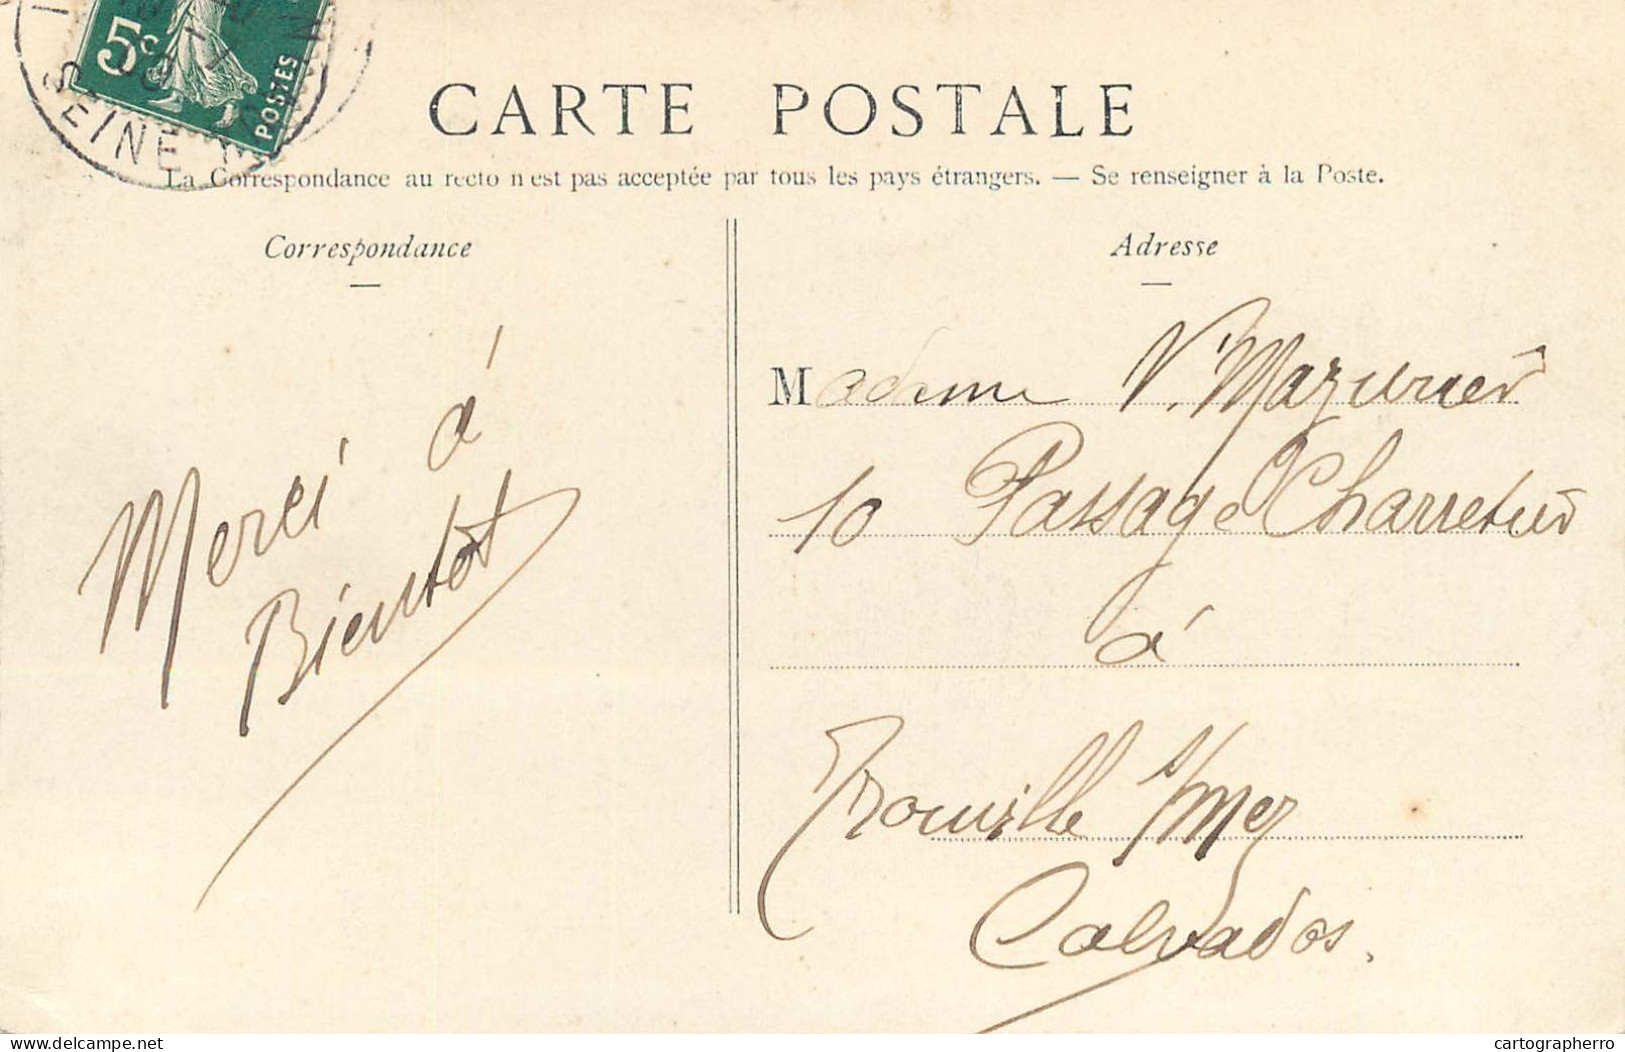 5c
POSTES
SEINE
CARTE POSTALE
La Correspondance au recto n'est pas acceptée par tous les pays étrangers. — Se renseigner à la Poste.
Correspondance
Adresse
Merci à
Bientot
Madame V. Mazurier
10 Passage Charretier
à
Trouville s/mer
Calvados.
delcampe.net
cartographerro